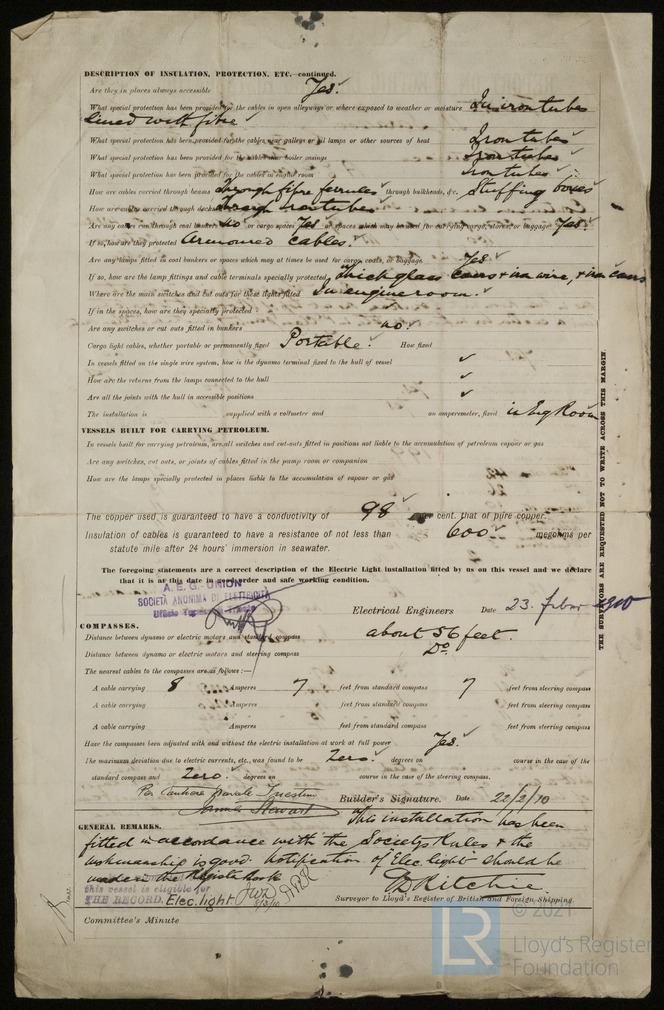 DESCRIPTION OF INSULATION, PROTECTION, ETC.—continued.
Are they in places always accessible Yes.
What special protection has been provided for the cables in open alleyways or where exposed to weather or moisture In iron tubes
lined with fibre
What special protection has been provided for the cables near galleys or oil lamps or other sources of heat Iron tubes
What special protection has been provided for the cables near boiler casings Iron tubes
What special protection has been provided for the cables in engine room Iron tubes
How are cables carried through beams Through fibre ferrules through bulkheads, &c. Stuffing boxes
How are cables carried through decks Through Iron tubes
Are any cables run through coal bunkers no or cargo spaces Yes or spaces which may be used for carrying cargo, stores, or baggage Yes
If so, how are they protected Armoured cables.
Are any lamps fitted in coal bunkers or spaces which may at times be used for cargo, coals, or baggage Yes
If so, how are the lamp fittings and cable terminals specially protected Thick glass covers +
Where are the main switches and cut outs for these lights fitted In engine room.
If in the spaces, how are they specially protected
Are any switches or cut outs fitted in bunkers no.
Cargo light cables, whether portable or permanently fixed Portable. How fixed
In vessels fitted on the single wire system, how is the dynamo terminal fixed to the hull of vessel
How are the returns from the lamps connected to the hull
Are all the joints with the hull in accessible positions
The installation is supplied with a voltmeter and an amperemeter, fixed in Eng Room
VESSELS BUILT FOR CARRYING PETROLEUM.
In vessels built for carrying petroleum, are all switches and cut-outs fitted in positions not liable to the accumulation of petroleum vapour or gas
Are any switches, cut outs, or joints of cables fitted in the pump room or companion
How are the lamps specially protected in places liable to the accumulation of vapour or gas
The copper used is guaranteed to have a conductivity of 98 per cent. that of pure copper.
Insulation of cables is guaranteed to have a resistance of not less than 600 megohms per
statute mile after 24 hours' immersion in seawater.
The foregoing statements are a correct description of the Electric Light installation fitted by us on this vessel and we declare
that it is at this date in good order and safe working condition.
A. E. G. UNION
SOCIETÀ ANONIMA DI ELETTRICITÀ
Electrical Engineers Date 23. 1910
COMPASSES.
Distance between dynamo or electric motors and standard compass about 56 feet.
Distance between dynamo or electric motors and steering compass Do.
The nearest cables to the compasses are as follows:—
A cable carrying 8 Amperes 7 feet from standard compass 7 feet from steering compass
A cable carrying Amperes feet from standard compass feet from steering compass
A cable carrying Amperes feet from standard compass feet from steering compass
Have the compasses been adjusted with and without the electric installation at work at full power Yes.
The maximum deviation due to electric currents, etc., was found to be Zero. degrees on course in the case of the
standard compass and Zero. degrees on course in the case of the steering compass.
James Stewart Builder's Signature. Date 22/2/10
GENERAL REMARKS. This installation has been
fitted in accordance with the Society's Rules & the
workmanship is good. Notification of "Elec. light" should be
made in the Register Book
this vessel is eligible for
THE RECORD. Elec. light JWD 8/3/10
D Ritchie.
Surveyor to Lloyd's Register of British and Foreign Shipping.
Committee's Minute
THE SURVEYORS ARE REQUESTED NOT TO WRITE ACROSS THIS MARGIN.
© 2021
LR
Lloyd's Register
Foundation